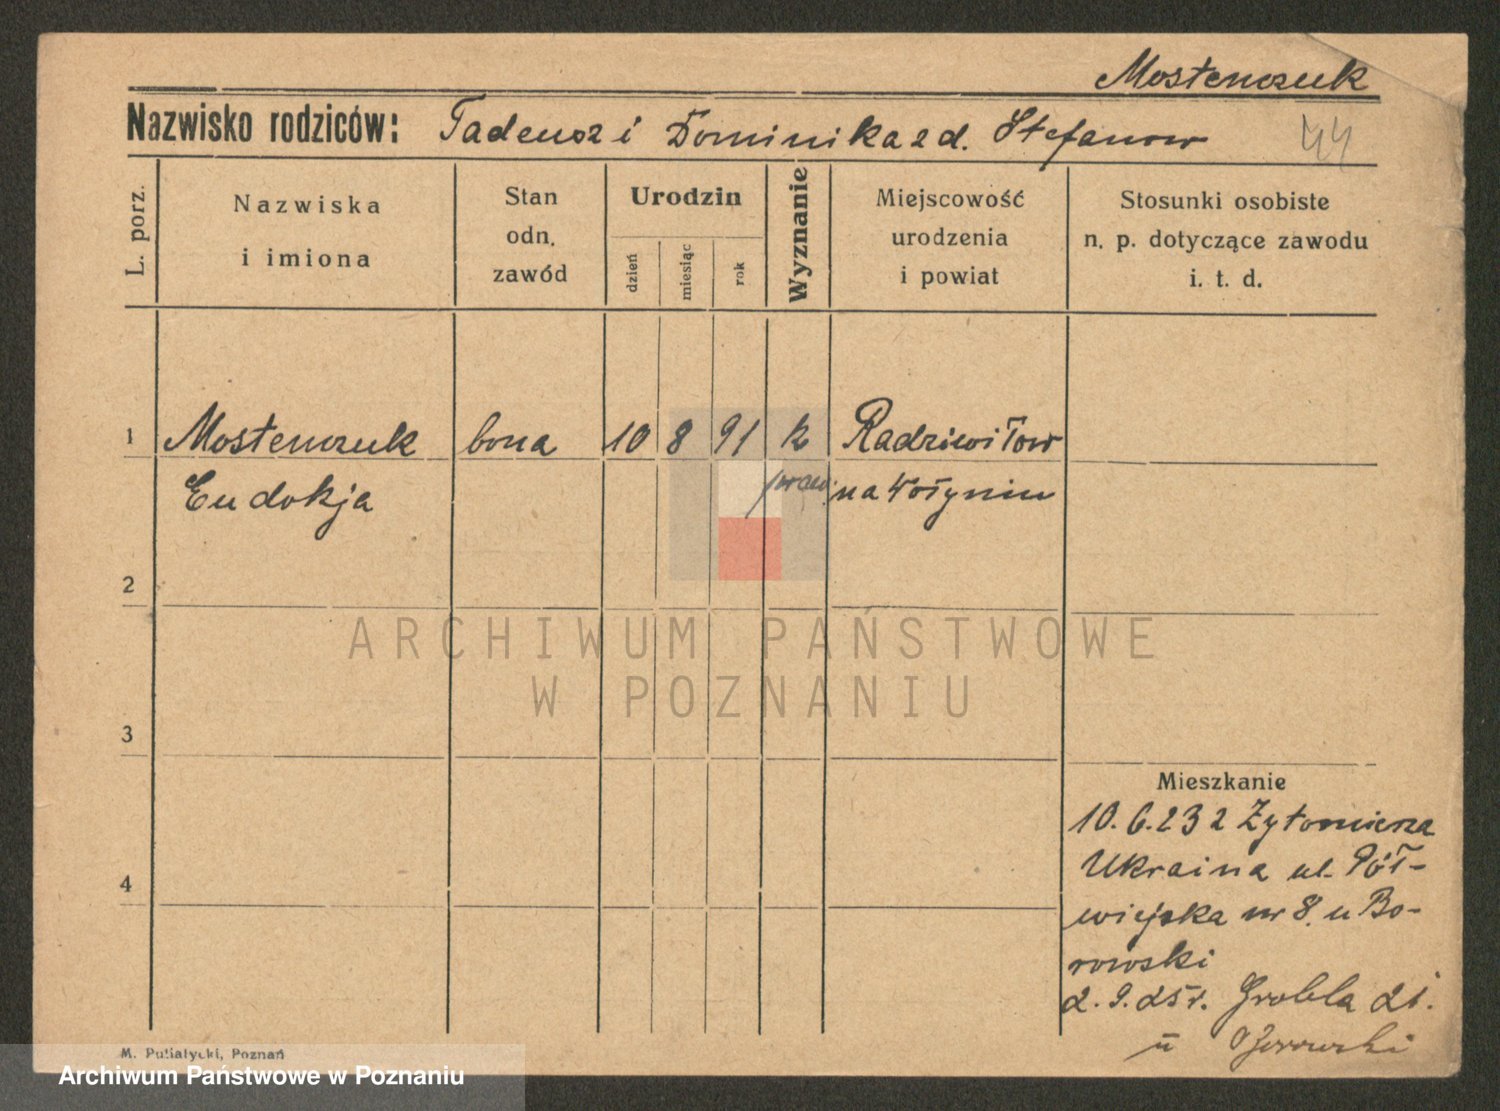 Mostenczuk
Nazwisko rodziców: Tadeusz i Dominika z d. Stefanow
44
L. porz.
Nazwiska
i imiona
Stan
odn.
zawód
Urodzin
dzień
miesiąc
rok
Wyznanie
Miejscowość
urodzenia
i powiat
Stosunki osobiste
n. p. dotyczące zawodu
i. t. d.
1 Mostenczuk bona 10 8 91 k Radziwiłow
Eudokja praw. na Wołyniu
2
3
4
ARCHIWUM PAŃSTWOWE
W POZNANIU
Mieszkanie
10.6.23 z Żytomierza
Ukraina ul. Pół-
wiejska nr 8. u Bo-
rowski
2.9.25 r. Grobla 21.
u
M. Putiatycki, Poznań
Archiwum Państwowe w Poznaniu